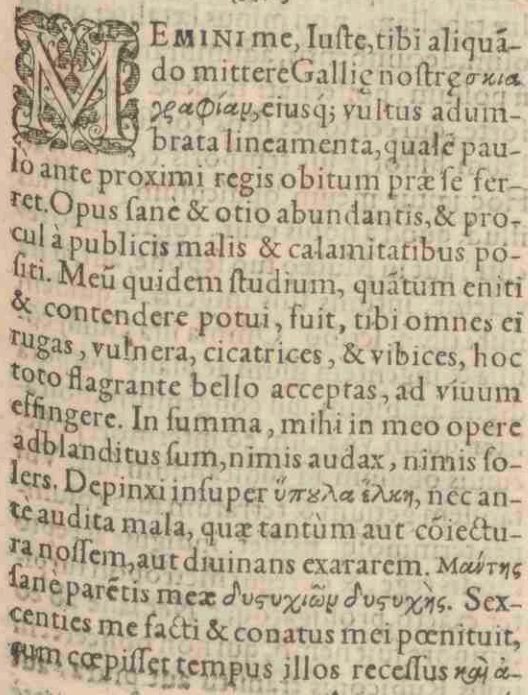 MEMINI me, Iuste, tibi aliquã-
do mittere Gallię nostrę σκια
γραφίαν, eiusq; vultus adum-
brata lineamenta, qualẽ pau-
lò ante proximi regis obitum præ se fer-
ret. Opus sanè & otio abundantis, & pro-
cul à publicis malis & calamitatibus po-
siti. Meũ quidem studium, quãtum eniti
& contendere potui, fuit, tibi omnes eĩ
rugas, vulnera, cicatrices, & vibices, hoc
toto flagrante bello acceptas, ad viuum
effingere. In summa, mihi in meo opere
adblanditus sum, nimis audax, nimis so-
lers. Depinxi insuper ὕπουλα ἕλκη, nec an-
tè audita mala, quæ tantùm aut cõiectu-
ra nossem, aut diuinans exararem. Μαύτης
sanè parẽtis meæ δυςυχιῶν δυςυχὴς. Sex-
centies me facti & conatus mei pœnituit,
cum cœpisset tempus illos recessus καὶ ἀ-